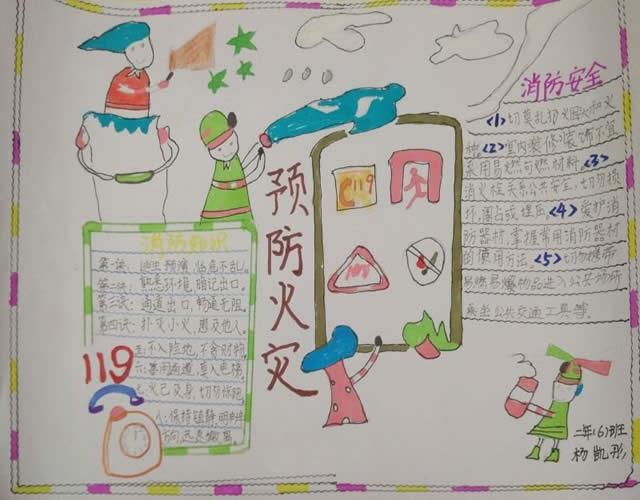 消防安全
<1>切莫乱扔烟头和火
种。<2>室内装修装饰不宜
采用易燃可燃材料。<3>
消火栓关系公共安全，切勿损
坏，圈占或埋压。<4>爱护消
防器材，掌握常用消防器材
的使用方法。<5>切勿携带
易燃易爆物品进入公共场所
乘坐公共交通工具等。
预防火灾
119
消防知识
第一诀：逃生预演，临危不乱。
第二诀：熟悉环境，暗记出口。
第三诀：通道出口，畅通无阻。
第四诀：扑灭小火，惠及他人。
不入险地，不贪财物
119
二年(6)班
杨凯彤